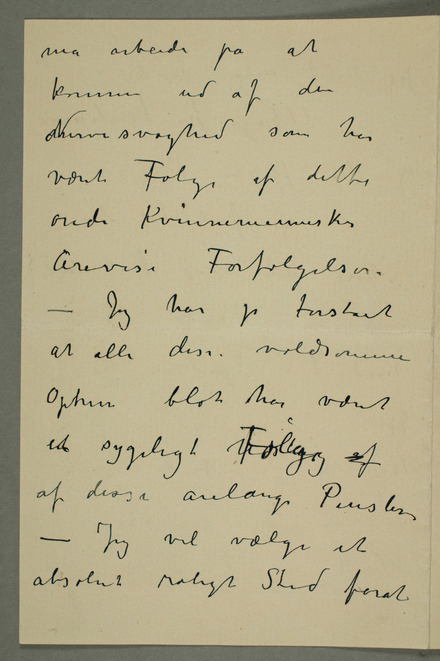 må arbeide på at
komme ud af den
Nervesvaghed som har
været Følge af dette
onde Kvinnemenneskes
årevise Forfølgelser.
– Jeg har jo forstaat
at alle disse voldsomme
Optrin blot har været
et sygeligt Følge af
af disse årelange Pinsler
– Jeg vil vælge et
absolut roligt Sted forat